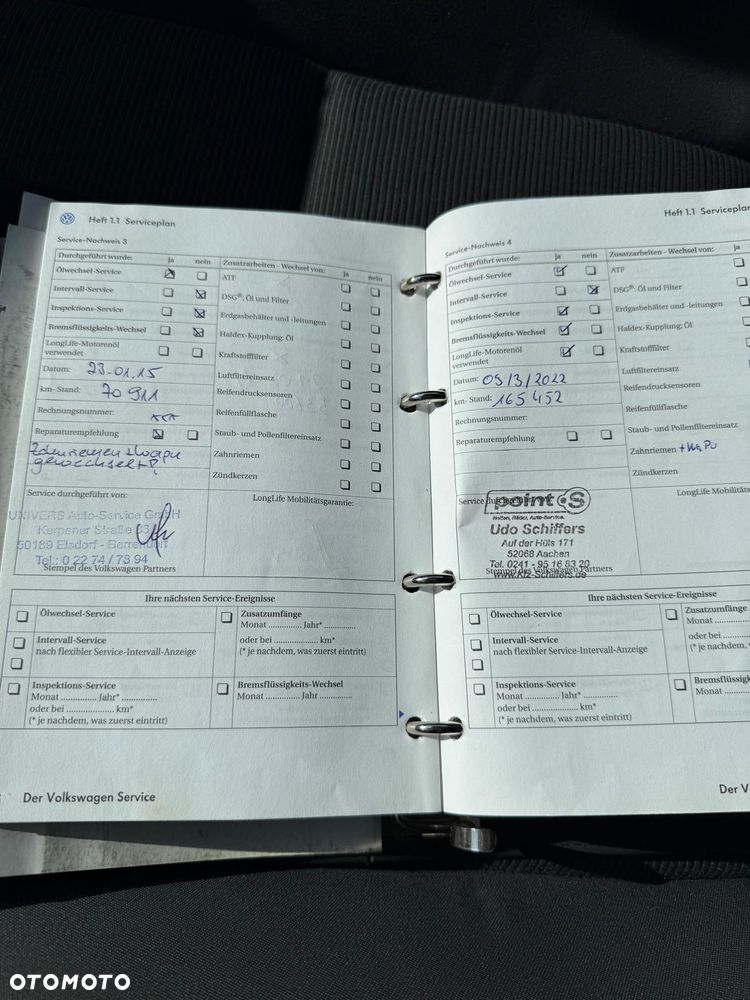 Heft 1.1 Serviceplan
Service-Nachweis 3
Durchgeführt wurde: ja nein
Ölwechsel-Service
Intervall-Service
Inspektions-Service
Bremsflüssigkeits-Wechsel
LongLife-Motorenöl
verwendet
Datum: 23.01.15
km-Stand: 70 911
Rechnungsnummer:
Reparaturempfehlung
Zusatzarbeiten - Wechsel von: ja nein
ATF
DSG®: Öl und Filter
Erdgasbehälter und -leitungen
Haldex-Kupplung: Öl
Kraftstofffilter
Luftfiltereinsatz
Reifendrucksensoren
Reifenfüllflasche
Staub- und Pollenfiltereinsatz
Zahnriemen
Zündkerzen
Service durchgeführt von:
UNIVERS Auto-Service GmbH
Kerpener Straße
50189 Elsdorf - Berrendorf
Tel.: 0 22 74 / 73 94
Stempel des Volkswagen Partners
LongLife Mobilitätsgarantie:
Ihre nächsten Service-Ereignisse
Ölwechsel-Service
Intervall-Service
nach flexibler Service-Intervall-Anzeige
Inspektions-Service
Monat .............. Jahr* ..............
oder bei ................... km*
(* je nachdem, was zuerst eintritt)
Zusatzumfänge
Monat .............. Jahr* .............
oder bei ................... km*
(* je nachdem, was zuerst eintritt)
Bremsflüssigkeits-Wechsel
Monat ............ Jahr ............
Der Volkswagen Service
Heft 1.1 Serviceplan
Service-Nachweis 4
Durchgeführt wurde: ja nein
Ölwechsel-Service
Intervall-Service
Inspektions-Service
Bremsflüssigkeits-Wechsel
LongLife-Motorenöl
verwendet
Datum: 09/3/2022
km- Stand: 165 452
Rechnungsnummer:
Reparaturempfehlung
Zusatzarbeiten - Wechsel von: ja
ATF
DSG®: Öl und Filter
Erdgasbehälter und -leitungen
Haldex-Kupplung: Öl
Kraftstofffilter
Luftfiltereinsatz
Reifendrucksensoren
Reifenfüllflasche
Staub- und Pollenfiltereinsatz
Zahnriemen + Wa Pu
Zündkerzen
Service
point S
Reifen, Räder, Auto-Service.
Udo Schiffers
Auf der Hüls 171
52068 Aachen
Tel. 0241 - 95 16 83 20
www.Kfz-Schiffers.de
Stempel des Volkswagen Partners
LongLife
Ihre nächsten Service-Ereignisse
Ölwechsel-Service
Intervall-Service
nach flexibler Service-Intervall-Anzeige
Inspektions-Service
Monat .............. Jahr* ..............
oder bei ................... km*
(* je nachdem, was zuerst eintritt)
Zusatzumfänge
Monat
oder bei
(* je nachdem, was
Monat
OTOMOTO